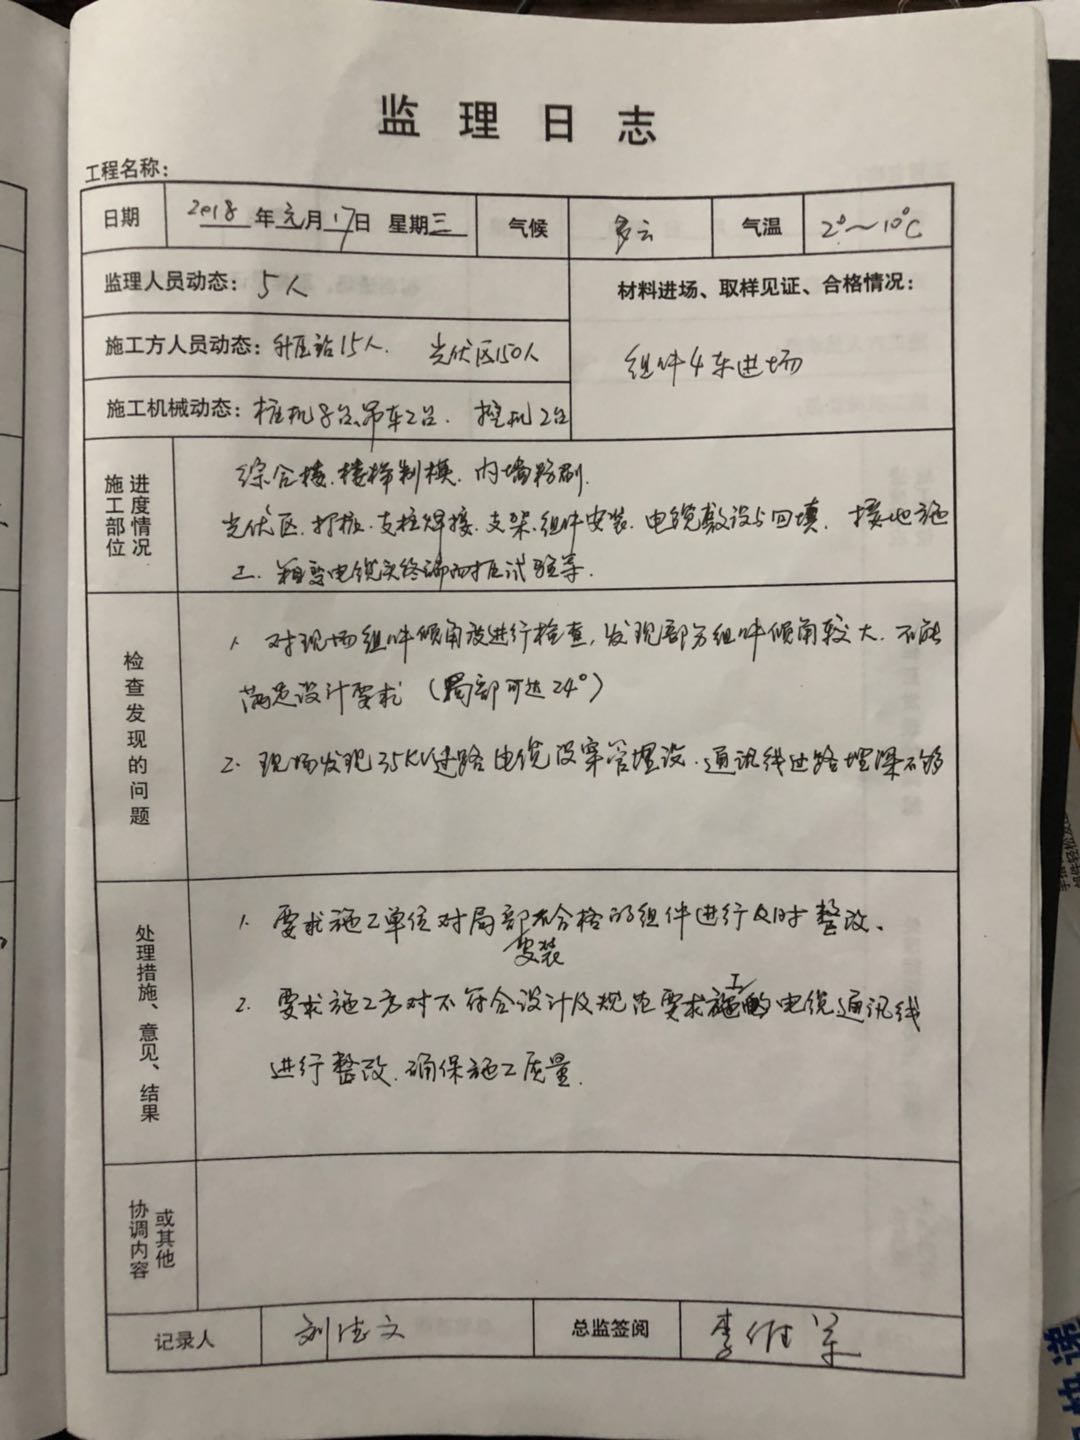 监理日志
工程名称：
日期 2018年元月17日 星期三 气候 多云 气温 2°～10°C
监理人员动态：5人
材料进场、取样见证、合格情况：
施工方人员动态：升压站15人. 光伏区150人
组件4车进场
施工机械动态：桩机8台、吊车2台. 挖机2台
施工部位
进度情况
综合楼.楼梯制模.内墙粉刷.
光伏区.打桩.支柱焊接.支架.组件安装.电缆敷设与回填.接地施
工.箱变电缆头终端耐压试验等.
检查发现的问题
1. 对现场组件倾角度进行检查,发现部分组件倾角较大.不能
满足设计要求（局部可达24°）
2. 现场发现35KV过路电缆没穿管埋设.通讯线过路埋深不够
处理措施、意见、结果
1. 要求施工单位对局部不合格的组件进行及时整改、
安装
2. 要求施工方对不符合设计及规范要求施工的电缆通讯线
进行整改.确保施工质量.
协调内容
或其他
记录人 刘 文 总监签阅 李
快递